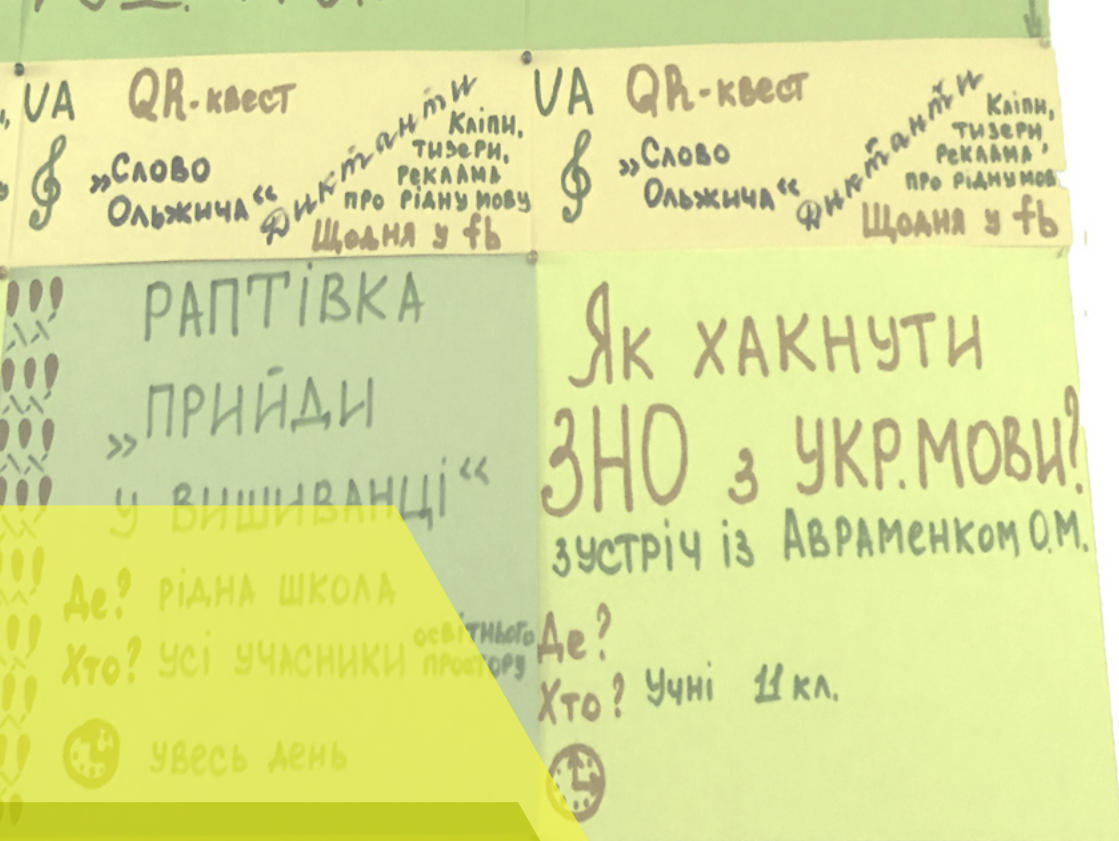 UA QR-квест
„Слово
Ольжича“
Диктанти
Кліпи,
тизери,
реклама
про рідну мову
Щодня у fb
UA QR-квест
„Слово
Ольжича“
Диктанти
Кліпи,
тизери,
реклама,
про рідну мов
Щодня у fb
РАПТІВКА
„ПРИЙДИ
У ВИШИВАНЦІ“
Де? РІДНА ШКОЛА
Хто? УСІ УЧАСНИКИ освітнього простору
увесь день
Як ХАКНУТИ
ЗНО з УКР.МОВИ?
зустріч із Авраменком О.М.
Де?
Хто? Учні 11 кл.